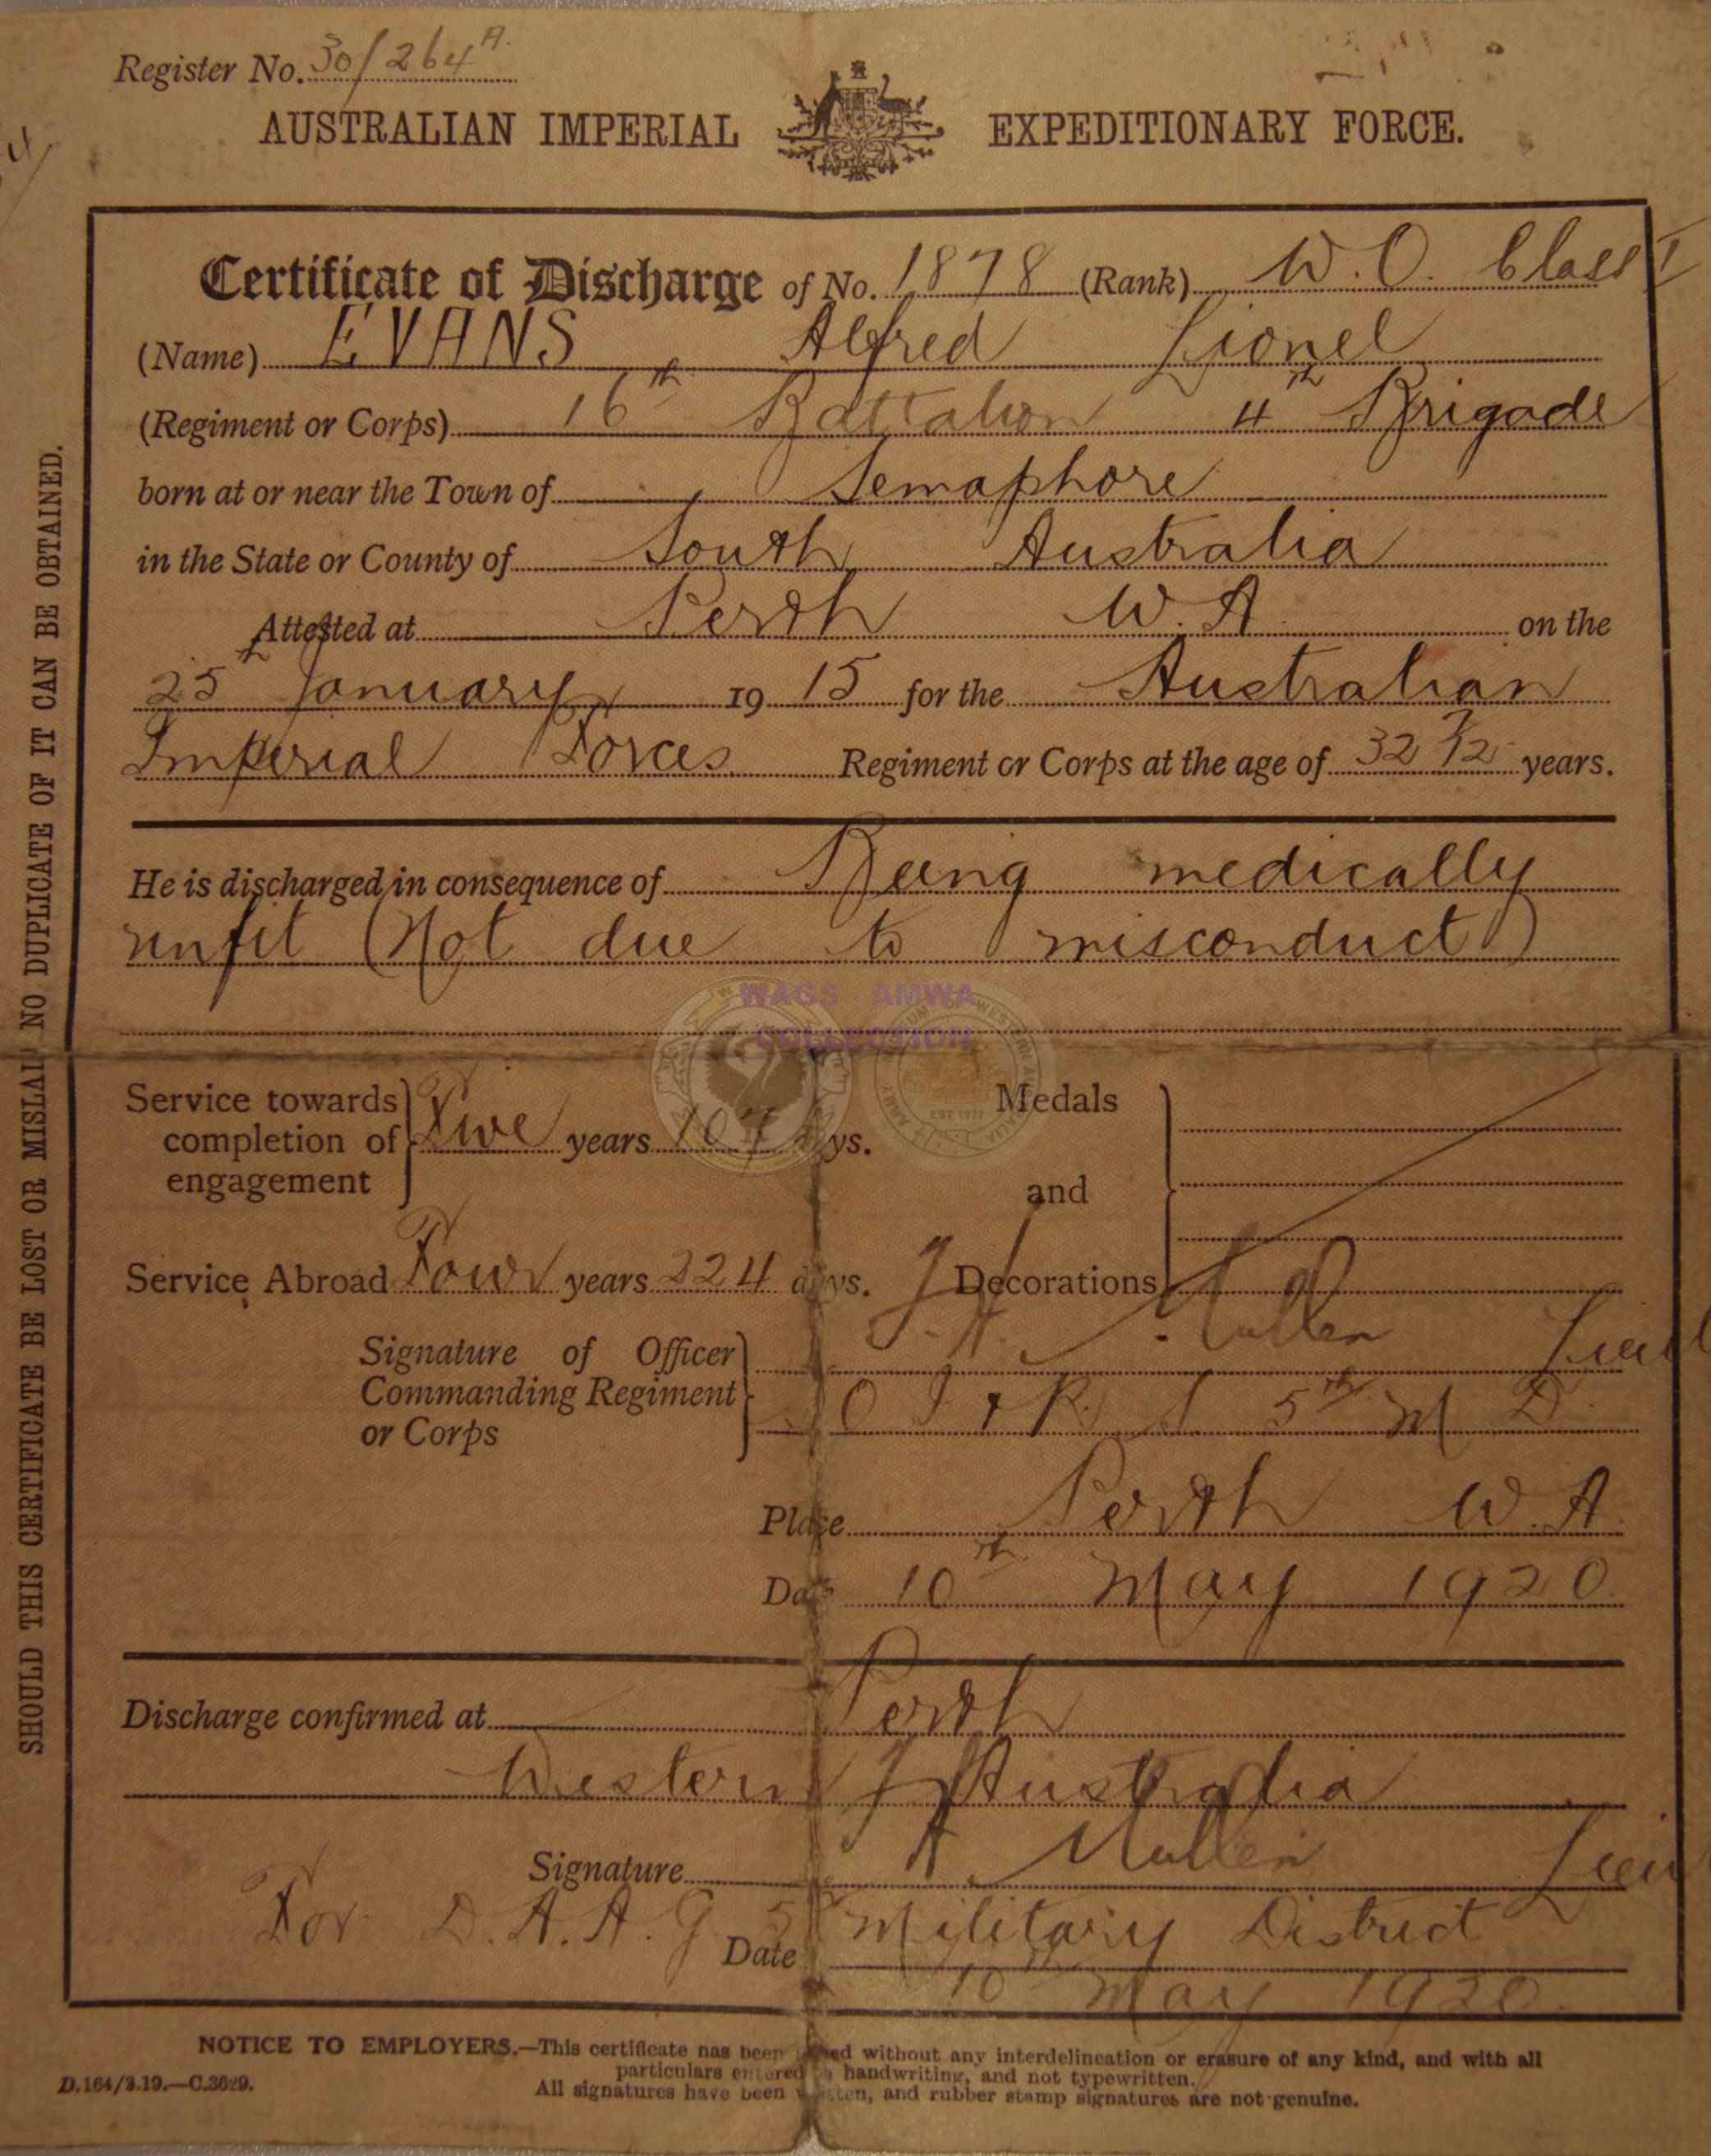 Register No. 30/264 A.
AUSTRALIAN IMPERIAL EXPEDITIONARY FORCE.
Certificate of Discharge of No. 1878 (Rank) W.O. Class I
(Name) EVANS Alfred Lionel
(Regiment or Corps) 16th Battalion 4th Brigade
born at or near the Town of Semaphore
in the State or County of South Australia
Attested at Perth W.A on the
25th January 1915 for the Australian
Imperial Forces Regiment or Corps at the age of 32 7/12 years.
He is discharged in consequence of Being medically
unfit (Not due to misconduct)
WAGS - AMWA
COLLECTION
Service towards completion of engagement Five years 107 days.
Medals and Decorations
Service Abroad Four years 224 days.
Signature of Officer Commanding Regiment or Corps J. H. Mullen Lieut
O I & R S 5th M D
Place Perth W.A
Date 10th May 1920
Discharge confirmed at Perth
Western Australia
Signature J H Mullen Lieu
For D.A.A.G 5th Military District
Date 10th May 1920
NOTICE TO EMPLOYERS.—This certificate has been issued without any interdelineation or erasure of any kind, and with all
particulars entered in handwriting, and not typewritten.
All signatures have been written, and rubber stamp signatures are not genuine.
D.164/3.19.—C.3629.
SHOULD THIS CERTIFICATE BE LOST OR MISLAID NO DUPLICATE OF IT CAN BE OBTAINED.